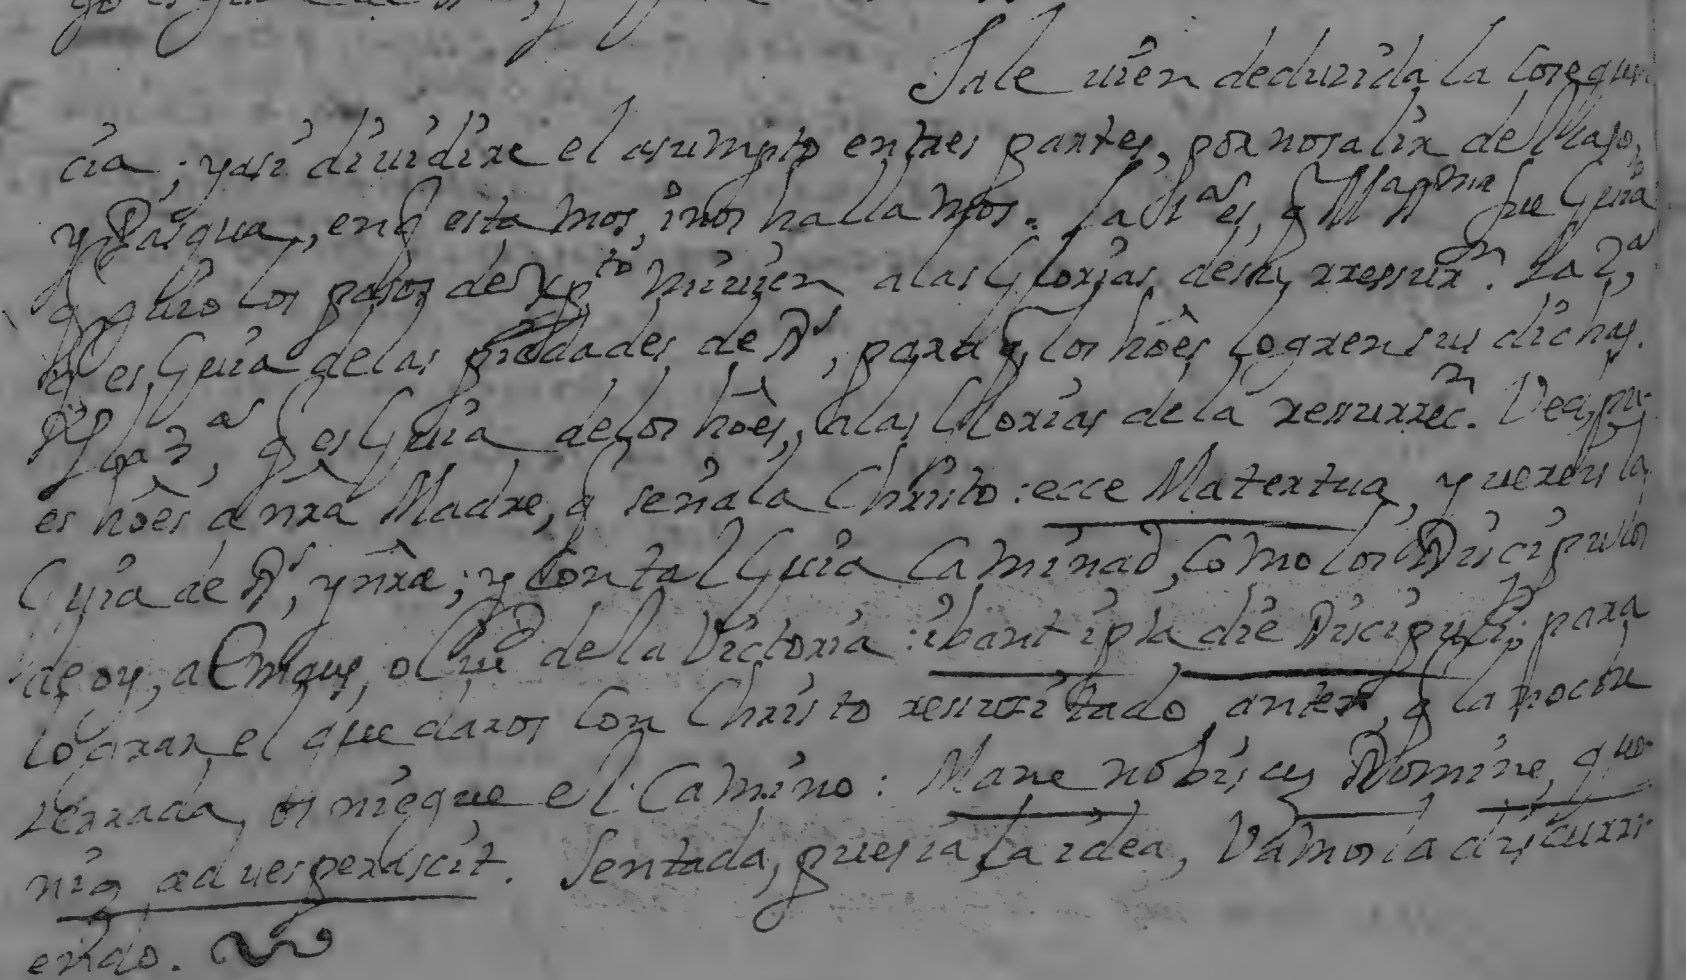 Sale uien deducida la conseqüen
cia; y asi diuidire el asumpto en tres partes, por no salir del caso,
y Pasqua, en q estamos, i nos hallamos. La 1ª es, q Mª SSma fue Guia
q guio los pasos de Xpto mui uien a las Glorias de su rressurrn. La 2ª,
q es Guia de las piedades de Ds, para q los hōes logren sus dichas.
Y la 3ª, q es Guia de los hōes, a las Glorias de la resurreccn. Vea, pu
es hōes a nrā Madre, q señala Christo: ecce Mater tua, y vereis la
Guia de Ds, y nrā; y con tal Guia Caminad, como los Discipulos
de oy, a Emaus, o Ciud de la Victoria: ibant ipsa die Discipuli; para
lograr el quedaros con Christo resusitado, antes q la noche
serrada, os niegue el Camino: Mane nobiscu Domine, quo
niā aduesperascit. Sentada, pues ia, la idea, Vamosla discurri
endo.